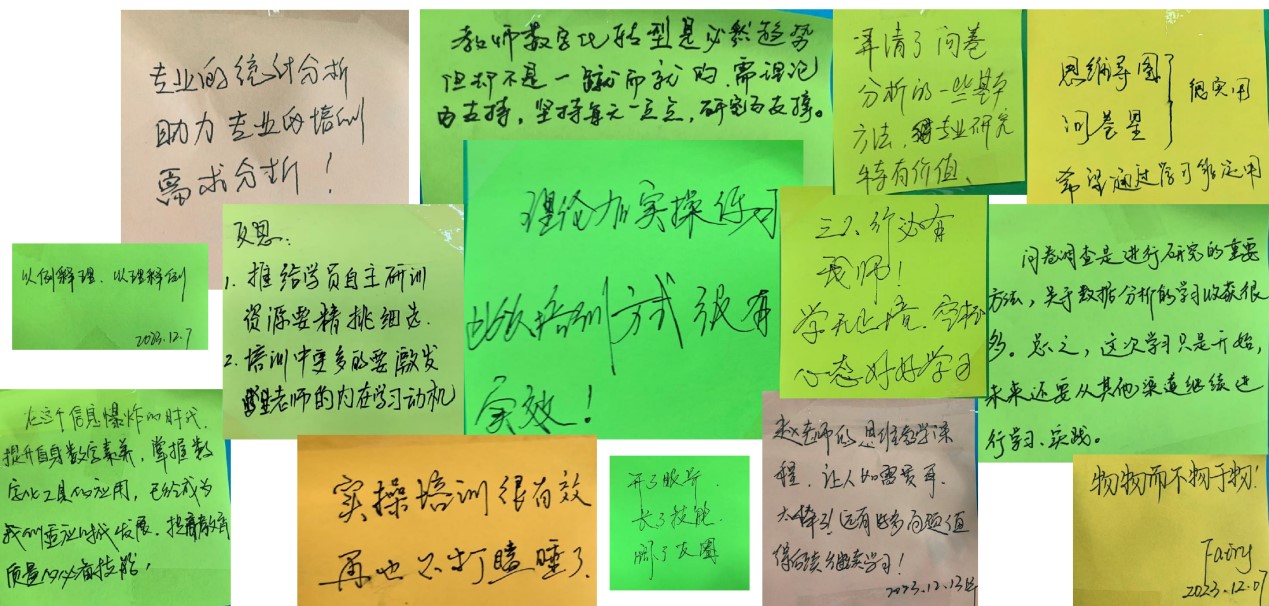 专业的统计分析
助力专业的培训
需求分析！
教师数字化转型是必然趋势
但却不是一蹴而就的，需理论
的支持，坚持每天一点点，研究的支撑。
弄清了问卷
分析的一些基本
方法，对专业研究
特有价值、
思维导图
问卷星
很实用
希望通过学习能运用
以例解理、以理释例
2023.12.7
反思：
1. 推给学员自主研训
资源要精挑细选.
2. 培训中更多的要激发
老师的内在学习动机
理论加实操练习
培训方式很有
实效！
三人行必有
我师！
学无止境，空杯
心态好好学习
问卷调查是进行研究的重要
方法，关于数据分析的学习收获很
多。总之，这次学习只是开始，
未来还要从其他渠道继续进
行学习、实践。
在这个信息爆炸的时代，
提升自身数字素养，掌握数
字化工具的应用，已经成为
我们重发展、提高教育
质量的必备技能！
实操培训很有效
再也不打瞌睡了.
开了眼界.
长了技能.
阔了友圈
赵老师的思维导学课
程，让人如雷贯耳.
太棒了！还有好多问题值
得后续继续学习！
2023.12.13
物物而不物于物！
Fairy
2023.12.07